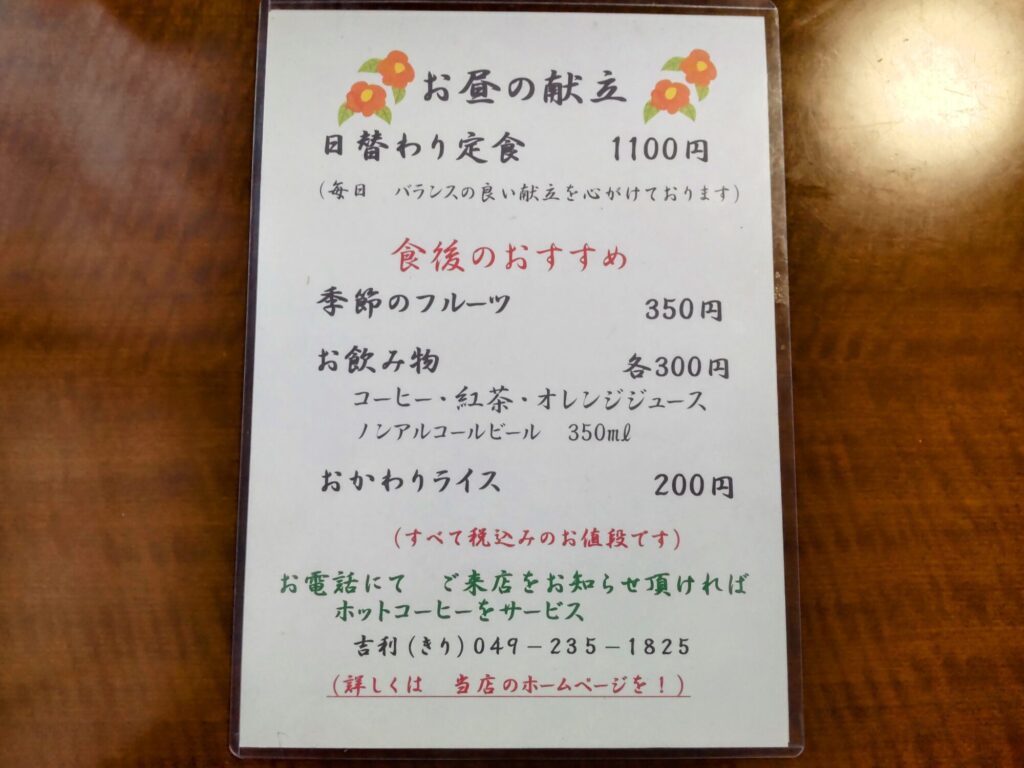 お昼の献立
日替わり定食　1100円
(毎日　バランスの良い献立を心がけております)
食後のおすすめ
季節のフルーツ　350円
お飲み物　各300円
コーヒー・紅茶・オレンジジュース
ノンアルコールビール　350㎖
おかわりライス　200円
(すべて税込みのお値段です)
お電話にて　ご来店をお知らせ頂ければ
ホットコーヒーをサービス
吉利(きり)049－235－1825
(詳しくは　当店のホームページを！)